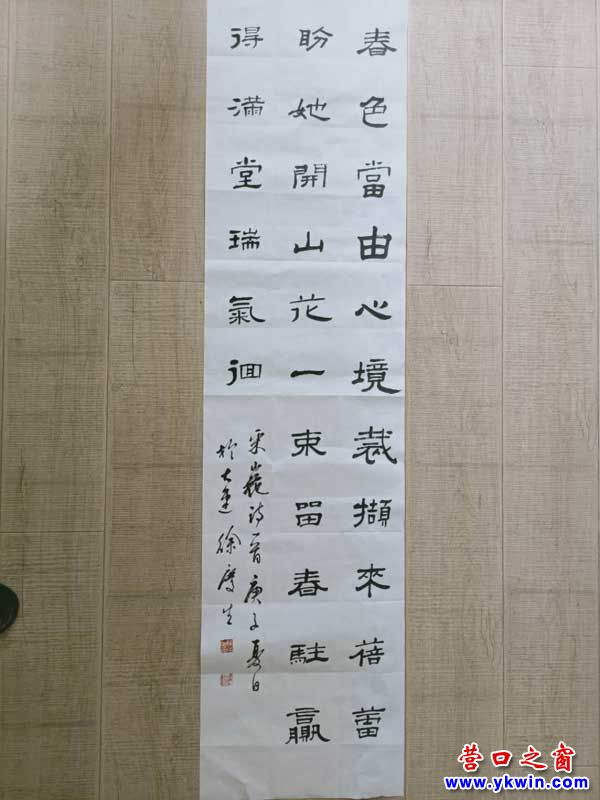 春色當由心境裁擷來蓓蕾
盼她開山花一束留春駐贏
得滿堂瑞氣徊
诗一首庚子夏日
於大连徐庆生
营口之窗
www.ykwin.com